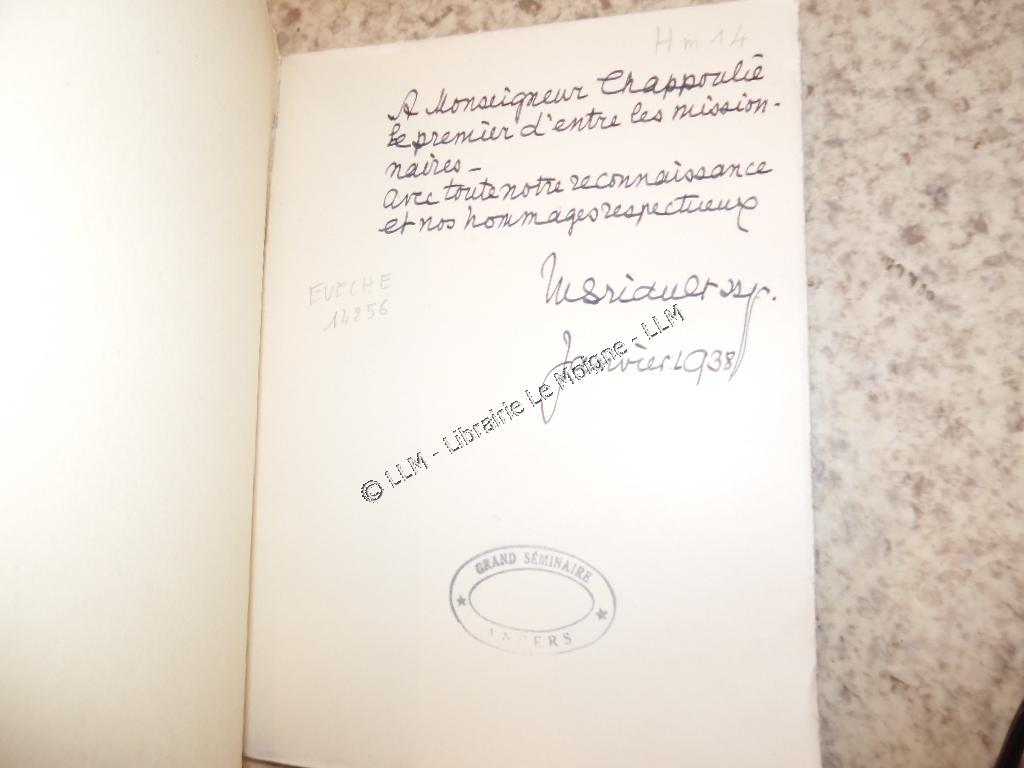 Hm 14
A Monseigneur Chappoulie
le premier d'entre les mission-
naires _
avec toute notre reconnaissance
et nos hommages respectueux
Janvier 1938
EVECHE
14256
© LLM - Librairie Le Moigne - LLM
GRAND SÉMINAIRE
ANGERS